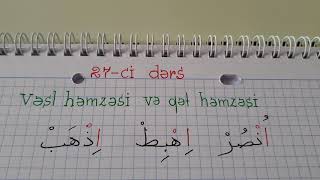 27-ci dərs
Vəsl həmzəsi və qət həmzəsi
اُنْصُرْ اِهْبِطْ اِذْهَبْ